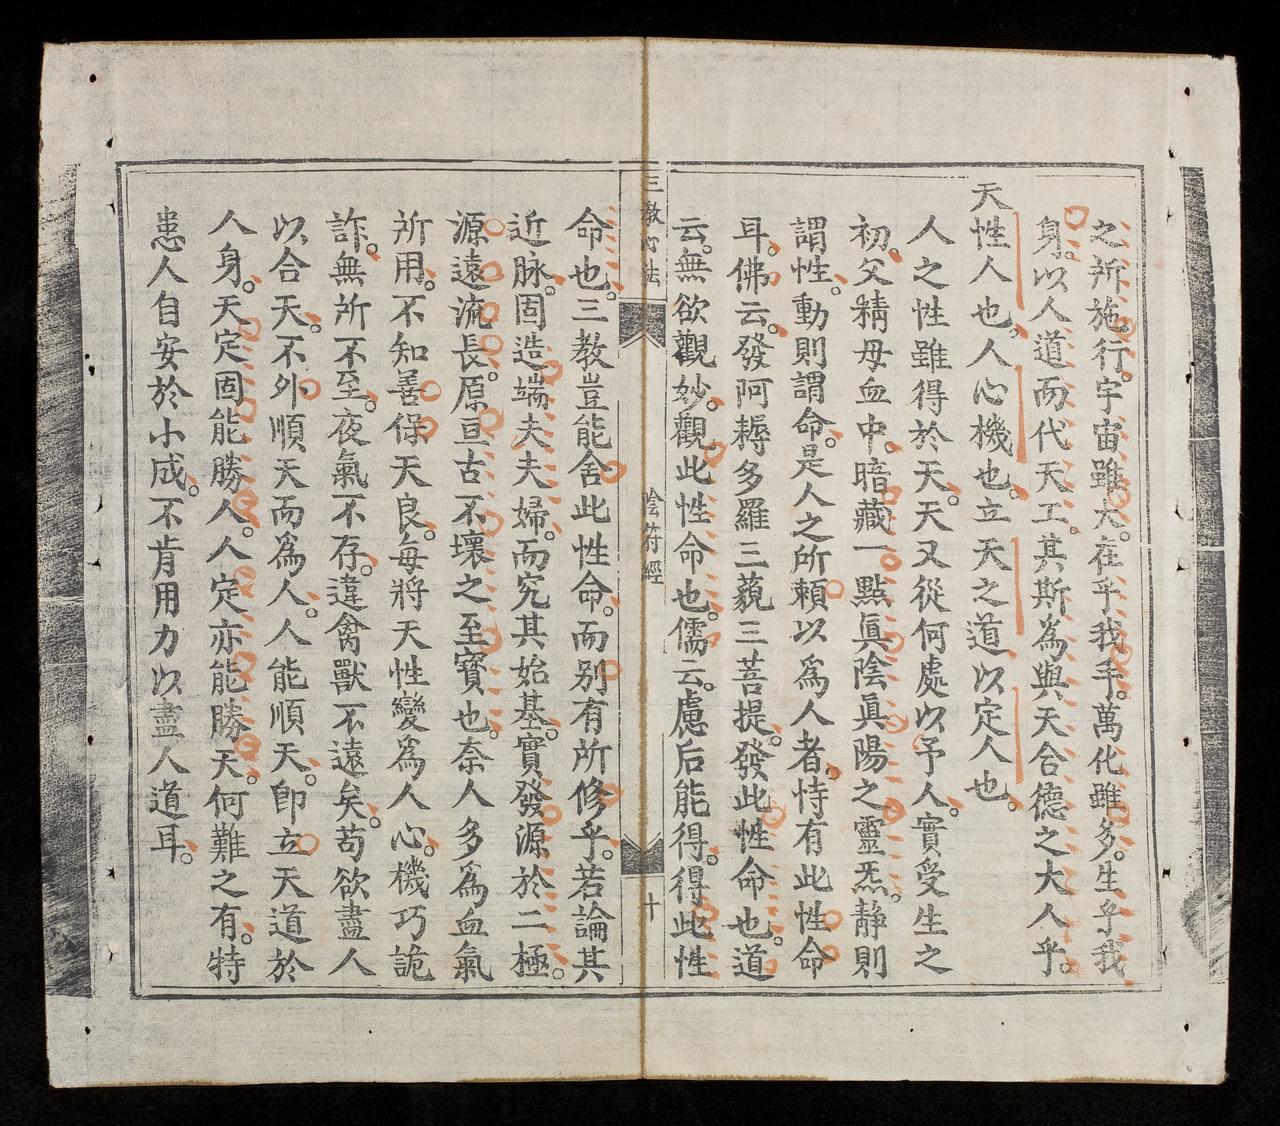 之所施行。宇宙雖大。在乎我手。萬化雖多。生乎我
身。以人道而代天工。其斯為與天合德之大人乎。
天性人也。人心機也。立天之道以定人也。
人之性雖得於天。天又從何處以予人。實受生之
初。父精母血中。暗藏一點眞陰眞陽之靈炁。靜則
謂性。動則謂命。是人之所賴以爲人者。恃有此性命
耳。佛云。發阿耨多羅三藐三菩提。發此性命也。道
云。無欲觀妙。觀此性命也。儒云。慮后能得。得此性
三教心法
陰符經
十
命也。三教豈能舍此性命。而别有所修乎。若論其
近脉。固造端夫夫婦。而究其始基。實發源於二極。
源遠流長。原亘古不壞之至寶也。奈人多為血氣
所用。不知善保天良。每將天性變爲人心。機巧詭
詐。無所不至。夜氣不存。違禽獸不遠矣。苟欲盡人
以合天。不外順天而爲人。人能順天。卽立天道於
人身。天定固能勝人。人定亦能勝天。何難之有。特
患人自安於小成。不肯用力以盡人道耳。